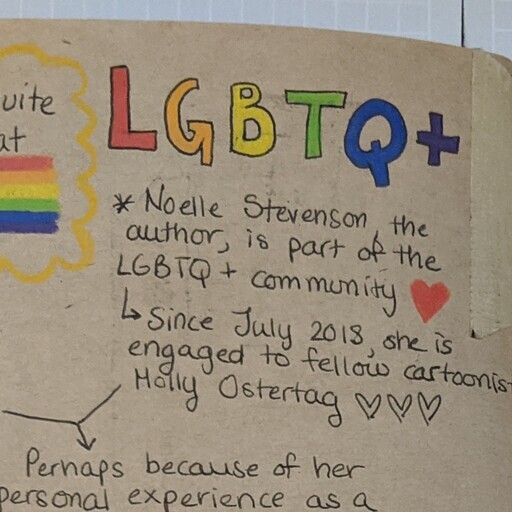 uite
at
LGBTQ+
* Noelle Stevenson, the
author, is part of the
LGBTQ + community
↳ Since July 2018, she is
engaged to fellow cartoonist
Molly Ostertag ♡♡♡
Perhaps because of her
personal experience as a